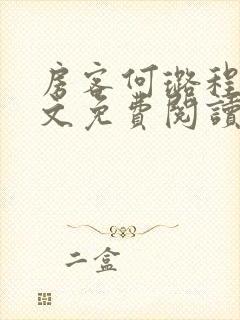 房客何璐程
文免費閱讀
二盒